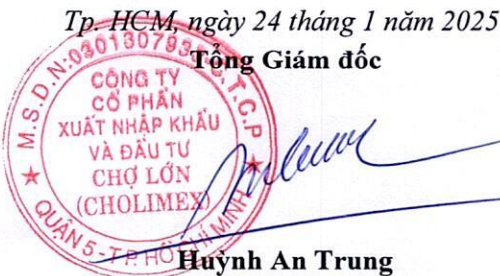 Tp. HCM, ngày 24 tháng 1 năm 2025
Tổng Giám đốc
M.S.D.N:030130793
C.T.C.P
CÔNG TY
CỔ PHẦN
XUẤT NHẬP KHẨU
VÀ ĐẦU TƯ
CHỢ LỚN
(CHOLIMEX)
QUẬN 5 - T.P. HỒ CHÍ MINH
Huỳnh An Trung